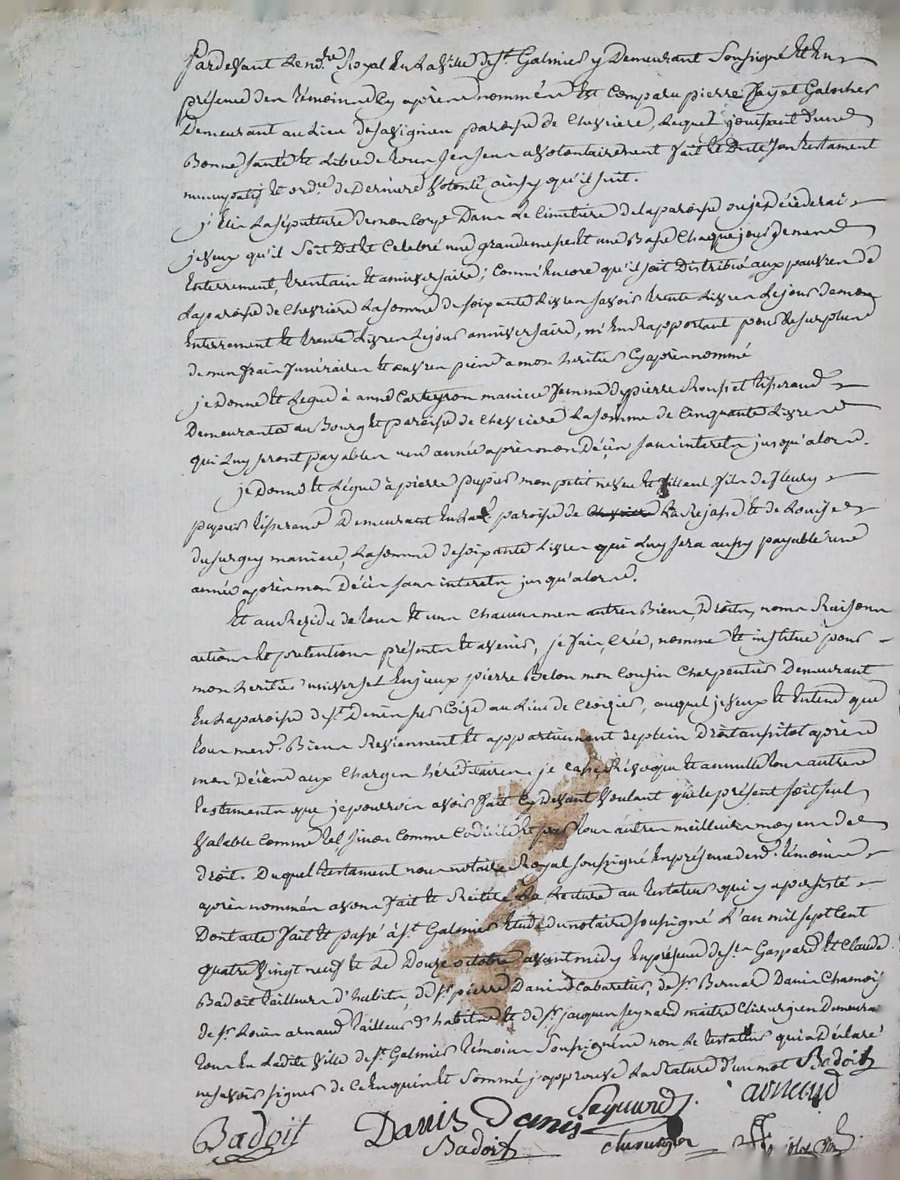 Pardevant le no.re Royal en la ville de St Galmier y demeurant soussigné et en
présence des témoins cy après nommés est comparu pierre Fayet Galocher
demeurant au lieu de savignieu paroisse de Chevriere, lequel jouissant d'une
bonne santé et libre de tous ses sens a volontairement fait et dicté son testament
nuncupatif et ord.re de derniere volonté ainsy qu'il suit.
j'élis la sépulture de mon corps dans le cimetière de la paroisse ou je décéderai
je veux qu'il soit dit et célébré une grande messe et une basse chaque jour de mes
enterrement, trentain et anniversaire; comme encore qu'il soit distribué aux pauvres de
la paroisse de Chevriere la somme de soixante livres savoir trente livres le jour de mon
enterrement et trente livres le jour anniversaire, m'en rapportant pour le surplus
de mes frais funéraires et œuvres pies a mon héritier cy après nommé
je donne et legue à anne maniere femme de pierre tisserand
demeurante au Bourg et paroisse de Chevriere la somme de cinquante livres
qui luy seront payables une année après mon décès sans interets jusqu'alors.
je donne et légue à pierre pupier mon petit neveu et filleul fils de fleury
pupier tisserand demeurant en la paroisse de la Rajasse et de Louise
dusurgey mariés, la somme de soixante livres qui luy sera aussy payable une
année après mon décès sans interets jusqu'alors.
Et au Rézidu de tous et uns chacuns mes autres biens, droits, noms Raisons
actions et prétentions présents et avenir, je fais, crée, nomme et institue pour
mon héritier universel pierre Belon mon cousin charpentier demeurant
en la paroisse de St. Denis sur Coize au lieu de Croizier, auquel je veux et entend que
tous mesd. biens reviennent et appartiennent de plein droit aussitot après
mon décès aux charges héréditaires, je casse révoque et annulle tous autres
testaments que je pourrois avoir fait cy devant voulant que le présent soit seul
valable comme tel sinon comme codicille et par tous autres meilleurs moyens de
droit. Duquel testament nous notaire Royal soussigné en présence desd. témoins
après nommés avons fait et réitéré la lecture au testateur qui y a persisté
Dont acte fait et passé à St. Galmier étude du notaire soussigné l'an mil sept cent
quatre vingt neuf et le douze octobre avant midy en présence de srs Gaspard et Claude
Badoit tailleurs d'habits, de sr pierre Danis cabaretier, de sr Bernard Danis
de sr Louis arnaud tailleur d'habits et de sr jacques seynard maitre chirurgien demeurant
tous en ladite ville de St. Galmier témoins soussignés non le testateur qui a déclaré
ne savoir signer de ce enquis et sommé j'approuve la rature d'un mot Badoit
Badoit Danis Danis arnaud
Badoit chirurgien